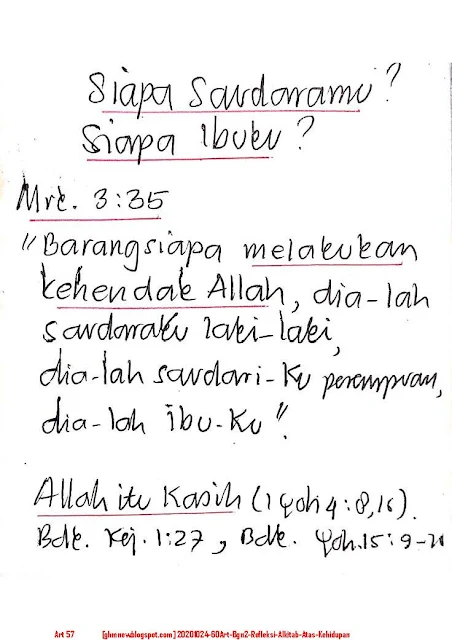 Siapa Saudaramu?
Siapa Ibuku?
Mrk. 3:35
"Barangsiapa melakukan
kehendak Allah, dia-lah
saudaraku laki-laki,
dia-lah saudari-Ku perempuan,
dia-lah ibu-Ku".
Allah itu Kasih (1 Yoh 4:8,16).
Bdk. Kej. 1:27, Bdk. Yoh.15:9-
Art 57 [glmnewblogspot.com] 20201024-60Art-Bgn2-Refleksi-Alkitab-Atas-Kehidupan